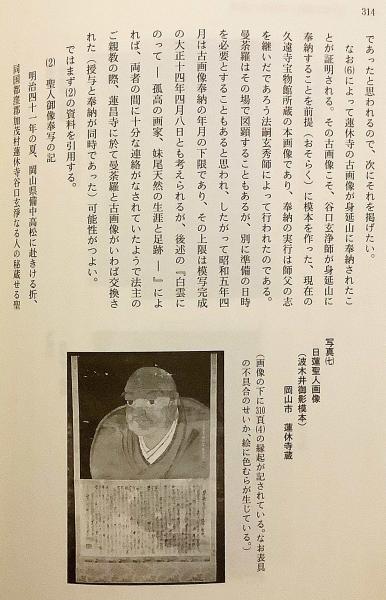 314
であったと思われるので、次にそれを掲げたい。
なお(6)によって蓮休寺の古画像が身延山に奉納されたこ
とが証明される。その古画像こそ、谷口玄浄師が身延山に
奉納することを前提（おそらく）に模本を作った、現在の
久遠寺宝物館所蔵の本画像であり、奉納の実行は師父の志
を継いだであろう法嗣玄秀師によって行われたのである。
曼荼羅はその場で図顕することもあるが、別に準備の日時
を必要とすることもあると思われ、したがって昭和五年四
月は古画像奉納の年月の下限であり、その上限は模写完成
の大正十四年四月八日とも考えられるが、後述の『白雲に
のって ― 孤高の画家、妹尾天然の生涯と足跡 ―』によ
れば、両者の間に十分な連絡がなされていたようで法主の
ご親教の際、蓮昌寺に於て曼荼羅と古画像がいわば交換さ
れた（授与と奉納が同時であった）可能性がつよい。
ではまず(2)の資料を引用する。
(2) 聖人御像奉写の記
明治四十一年の夏、岡山県備中高松に赴きける折、
同国都窪郡加茂村蓮休寺谷口玄浄なる人の秘蔵せる聖
写真㈦
日蓮聖人画像
（波木井御影模本）
岡山市 蓮休寺蔵
（画像の下に310頁(4)の縁起が記されている。なお表具
の不具合のせいか、絵に色むらが生じている。）